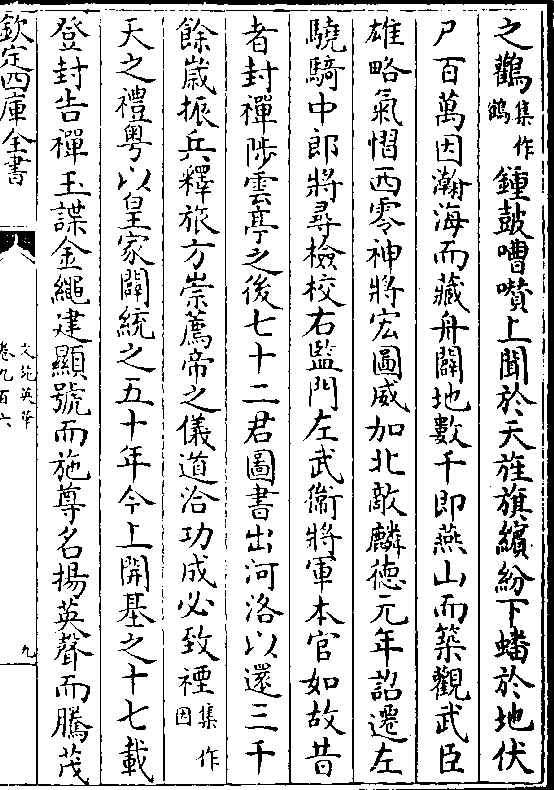 之鸛集作鶴鍾鼓嘈囋上聞於天旌旗繽紛下蟠於地伏
尸百萬因瀚海而藏舟闢地數千即燕山而築觀武臣
雄略氣慴西零神將宏圖威加北敵麟德元年詔遷左
驍騎中郎將尋檢校右監門左武衞將軍本官如故昔
者封禪陟雲亭之後七十二君圖書出河洛以還三千
餘嵗振兵釋旅方崇薦帝之儀道洽功成必致禋集作因
天之禮粤以皇家闢統之五十年今上開基之十七載
登封告禪玉諜金繩建顯號而施尊名揚英聲而騰茂
欽定四庫全書
文苑英華
卷九百六
九